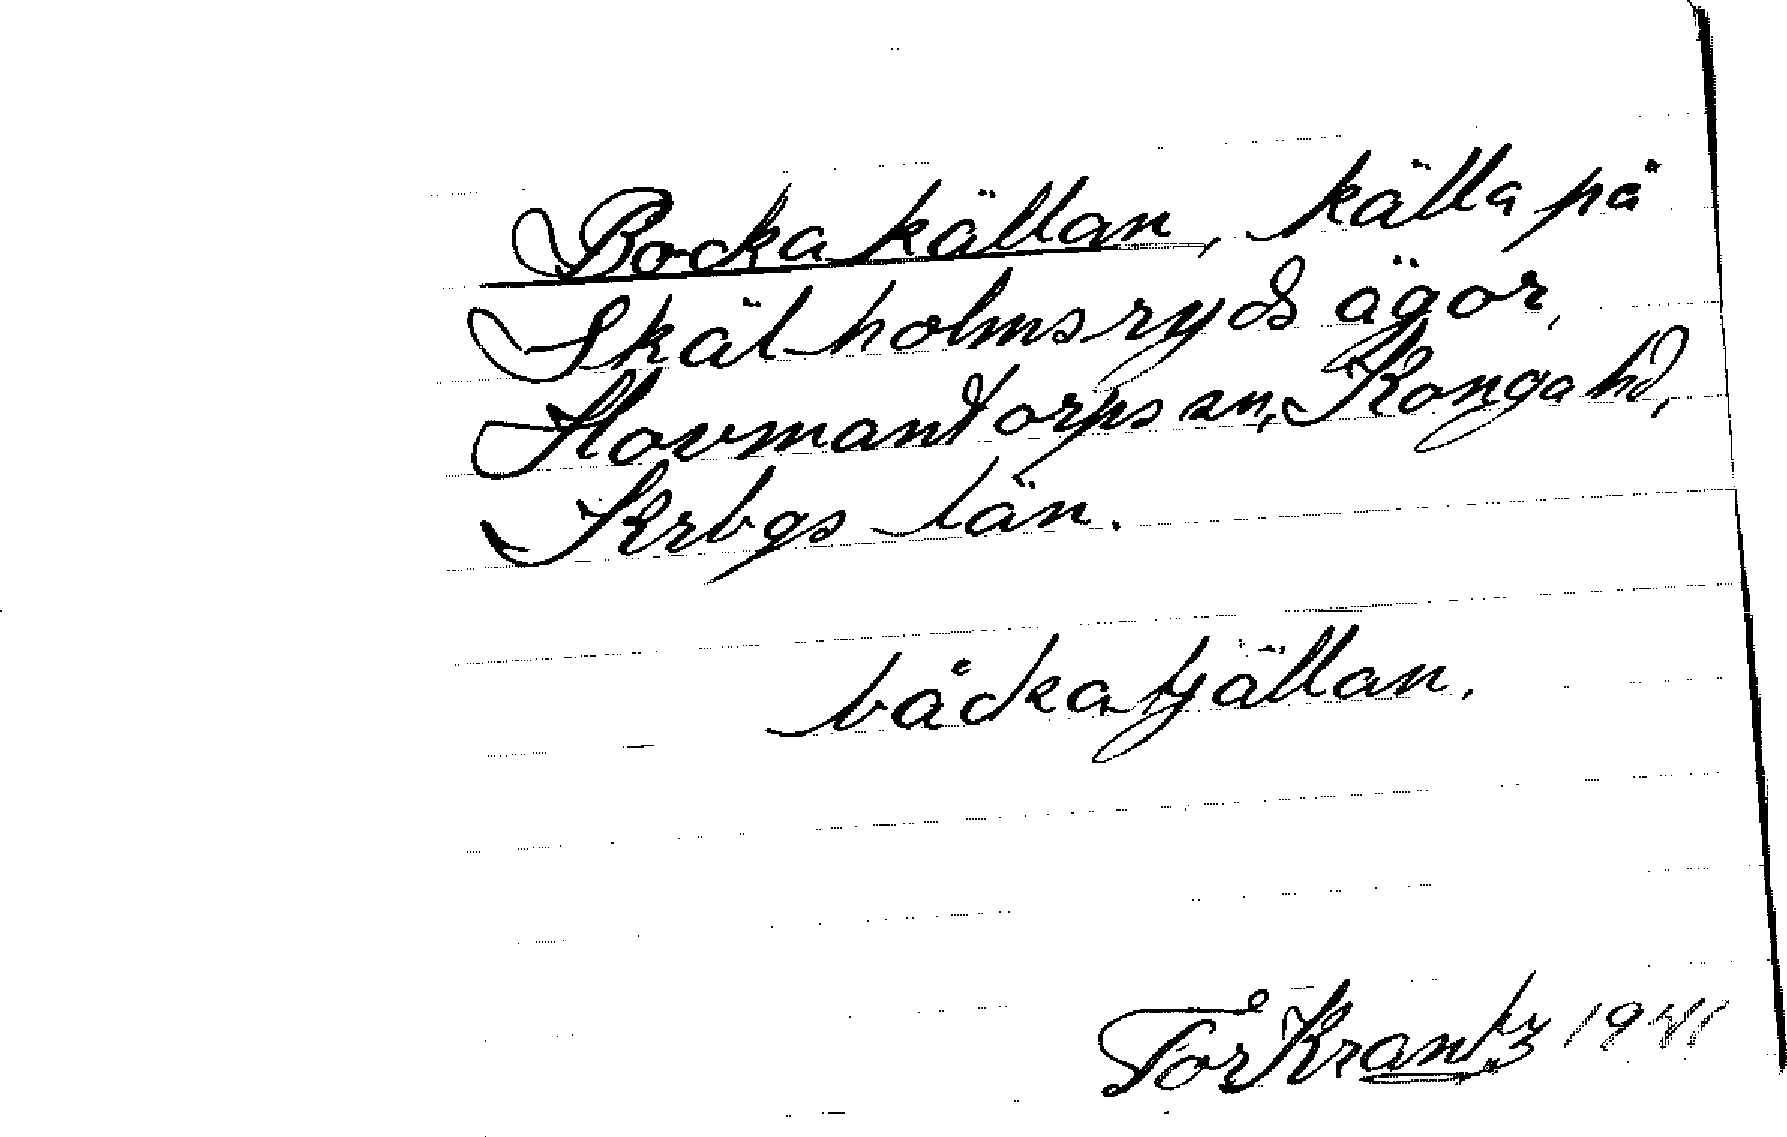 Bockakällan, källa på
Skälholmsryds ägor,
Hovmantorps sn, Konga hd,
Krbgs län.
båckatjällan.
Tor Krantz 1941